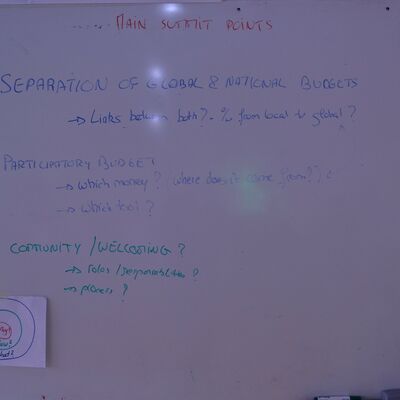 ...... MAIN SUMMIT POINTS
SEPARATION OF GLOBAL & NATIONAL BUDGETS
→ Links between both? - % from local to global?
PARTICIPATORY BUDGET
→ which money? (where does it come from?)
→ which tool?
COMMUNITY / WELCOMING?
→ roles / responsibilities?
→ process?